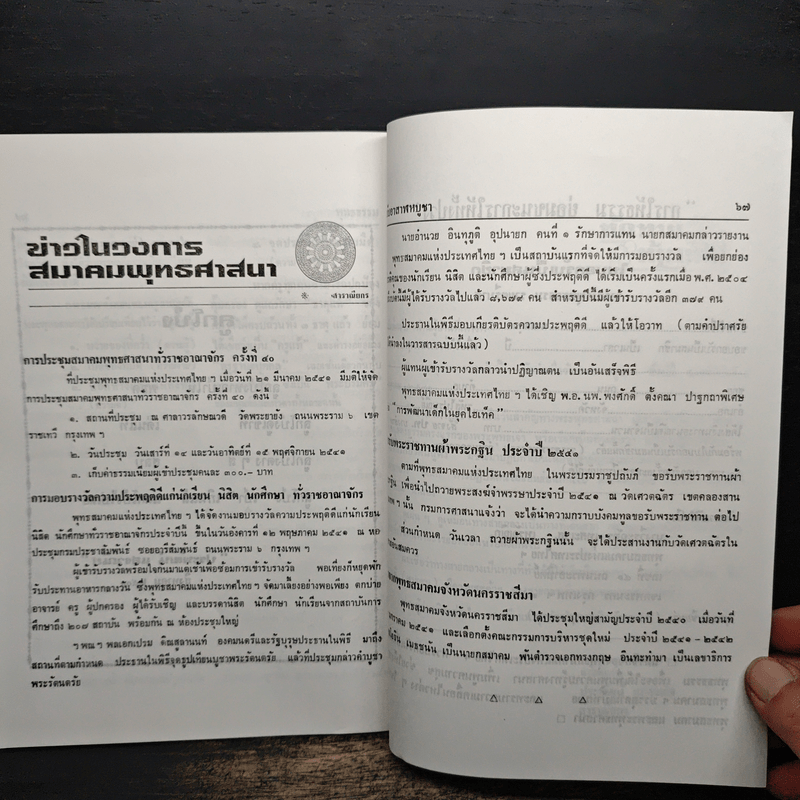 ข่าวในวงการ
สมาคมพุทธศาสนา
สาราณียกร
การประชุมสมาคมพุทธศาสนาทั่วราชอาณาจักร ครั้งที่ ๔๐
ที่ประชุมพุทธสมาคมแห่งประเทศไทย ฯ เมื่อวันที่ ๒๑ มีนาคม ๒๕๔๑ มีมติให้จัด
การประชุมสมาคมพุทธศาสนาทั่วราชอาณาจักร ครั้งที่ ๔๐ ดังนี้
๑. สถานที่ประชุม ณ ศาลาวรลักษณวดี วัดพระยายัง ถนนพระราม ๖ เขต
ราชเทวี กรุงเทพ ฯ
๒. วันประชุม วันเสาร์ที่ ๑๔ และวันอาทิตย์ที่ ๑๕ พฤศจิกายน ๒๕๔๑
๓. เก็บค่าธรรมเนียมผู้เข้าประชุมคนละ ๓๐๐.- บาท
การมอบรางวัลความประพฤติดีแก่นักเรียน นิสิต นักศึกษา ทั่วราชอาณาจักร
พุทธสมาคมแห่งประเทศไทย ฯ ได้จัดงานมอบรางวัลความประพฤติดีแก่นักเรียน
นิสิต นักศึกษาทั่วราชอาณาจักรประจำปีนี้ ขึ้นในวันอังคารที่ ๑๒ พฤษภาคม ๒๕๔๑ ณ หอ
ประชุมกรมประชาสัมพันธ์ ซอยอารีสัมพันธ์ ถนนพระราม ๖ กรุงเทพ ฯ
ผู้เข้ารับรางวัลพร้อมใจกันมาแต่เช้าเพื่อซ้อมการเข้ารับรางวัล พอเที่ยงก็หยุดพัก
รับประทานอาหารกลางวัน ซึ่งพุทธสมาคมแห่งประเทศไทย ฯ จัดมาเลี้ยงอย่างพอเพียง ตกบ่าย
อาจารย์ ครู ผู้ปกครอง ผู้ได้รับเชิญ และบรรดานิสิต นักศึกษา นักเรียนจากสถาบันการ
ศึกษาถึง ๒๐๗ สถาบัน พร้อมกัน ณ ห้องประชุมใหญ่
ฯพณฯ พลเอกเปรม ติณสูลานนท์ องคมนตรีและรัฐบุรุษประธานในพิธี มาถึง
สถานที่ตามกำหนด ประธานในพิธีจุดธูปเทียนบูชาพระรัตนตรัย แล้วที่ประชุมกล่าวคำบูชา
พระรัตนตรัย
อาสาฬหบูชา ๖๗
นายอำนวย อินทุภูติ อุปนายก คนที่ ๑ รักษาการแทน นายกสมาคมกล่าวรายงาน
พุทธสมาคมแห่งประเทศไทย ฯ เป็นสถาบันแรกที่จัดให้มีการมอบรางวัล เพื่อยกย่อง
ของนักเรียน นิสิต และนักศึกษาผู้ซึ่งประพฤติดี ได้เริ่มเป็นครั้งแรกเมื่อ พ.ศ. ๒๕๐๔
มีผู้ได้รับรางวัลไปแล้ว ๘,๖๗๙ คน สำหรับปีนี้มีผู้เข้ารับรางวัลอีก ๓๗๙ คน
ประธานในพิธีมอบเกียรติบัตรความประพฤติดี แล้วให้โอวาท (ตามคำปราศรัย
ลงในวารสารฉบับนี้แล้ว)
ผู้แทนผู้เข้ารับรางวัลกล่าวนำปฏิญาณตน เป็นอันเสร็จพิธี
พุทธสมาคมแห่งประเทศไทย ฯ ได้เชิญ พ.อ. นพ. พงศ์ศักดิ์ ตั้งคณา ปาฐกถาพิเศษ
“การพัฒนาเด็กในยุคไฮเท็ค”
พระราชทานผ้าพระกฐิน ประจำปี ๒๕๔๑
ตามที่พุทธสมาคมแห่งประเทศไทย ในพระบรมราชูปถัมภ์ ขอรับพระราชทานผ้า
เพื่อนำไปถวายพระสงฆ์จำพรรษาประจำปี ๒๕๔๑ ณ วัดเศวตฉัตร เขตคลองสาน
นั้น กรมการศาสนาแจ้งว่า จะได้นำความกราบบังคมทูลขอรับพระราชทาน ต่อไป
ส่วนกำหนด วันเวลา ถวายผ้าพระกฐินนั้น จะได้ประสานงานกับวัดเศวตฉัตรใน
สมควร
พุทธสมาคมจังหวัดนครราชสีมา
พุทธสมาคมจังหวัดนครราชสีมา ได้ประชุมใหญ่สามัญประจำปี ๒๕๔๐ เมื่อวันที่
๒๕๔๑ และเลือกตั้งคณะกรรมการบริหารชุดใหม่ ประจำปี ๒๕๔๑ - ๒๕๔๒
เมธชนัน เป็นนายกสมาคม พันตำรวจเอกทรงฤกษ อินทะทำมา เป็นเลขาธิการ